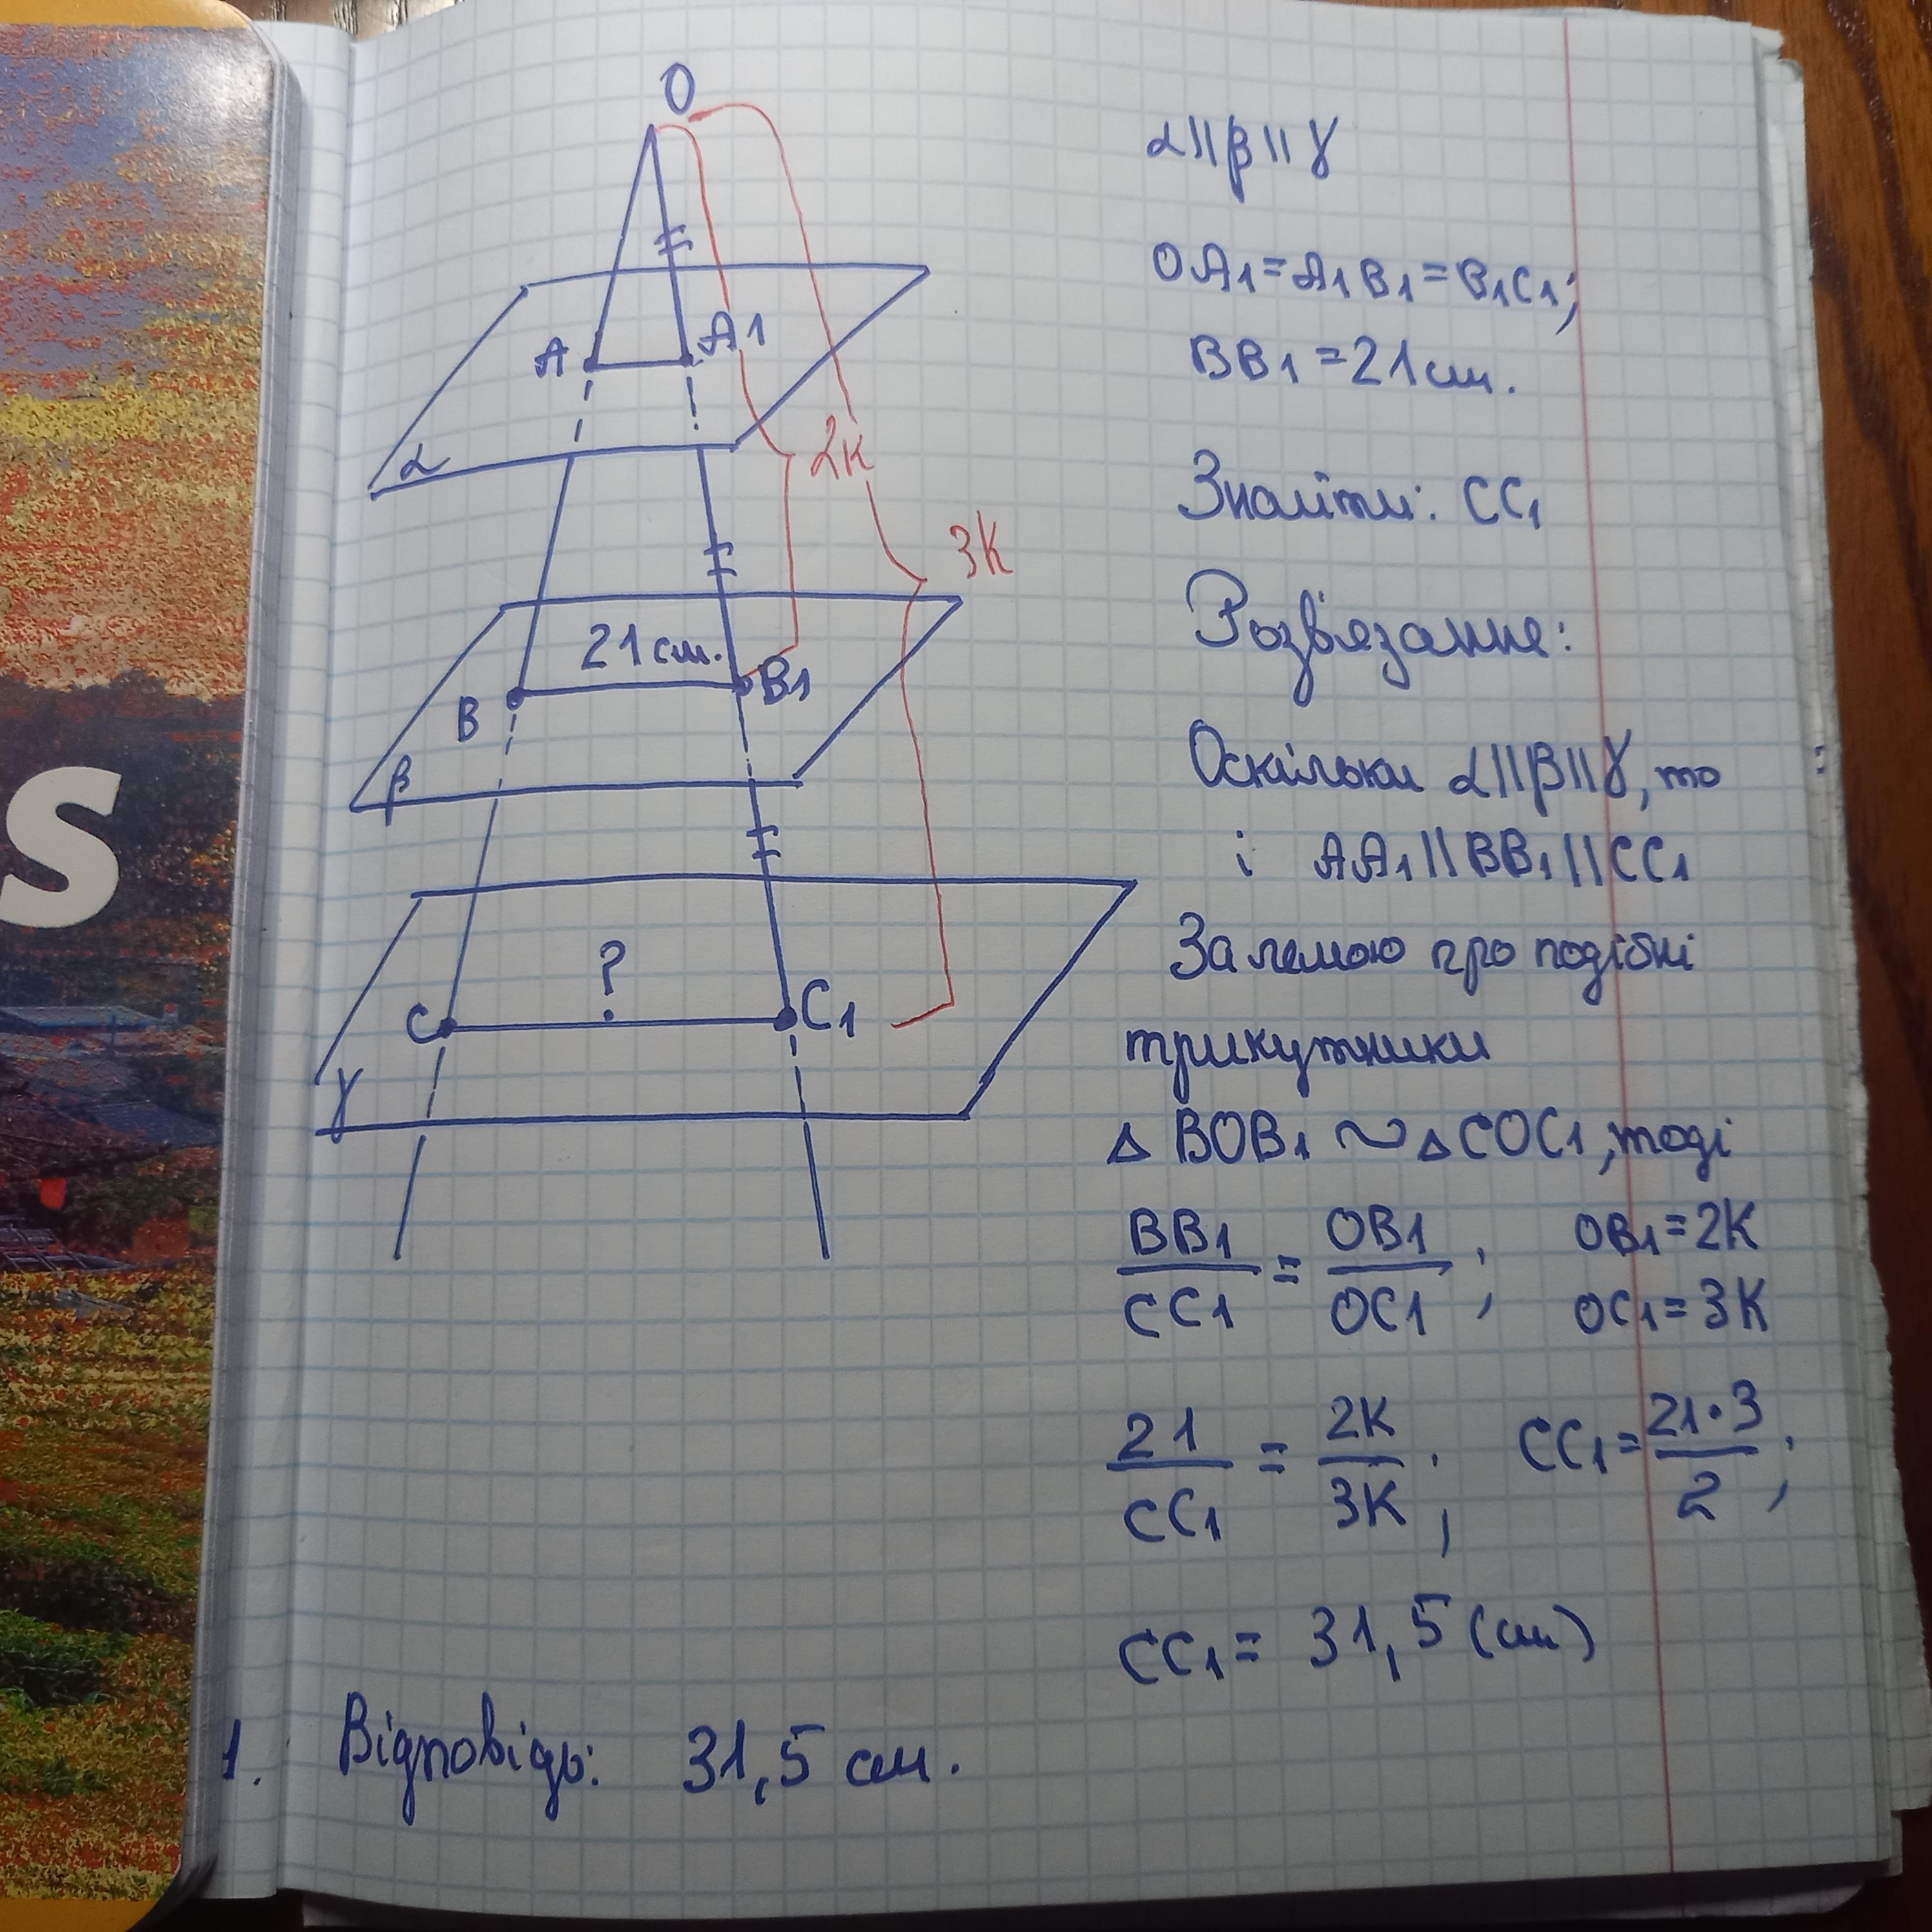 O
A
A1
α
2к
3к
21 см.
B
B1
β
?
C
C1
γ
S
α||β||γ
OA1=A1B1=B1C1;
BB1=21 см.
Знайти: CC1
Розв'язання:
Оскільки α||β||γ, то
і AA1||BB1||CC1
За лемою про подібні
трикутники
△ BOB1 ~ △ COC1, тоді
BB1/CC1 = OB1/OC1; OB1=2K
OC1=3K
21/CC1 = 2K/3K; CC1=21·3/2;
CC1= 31,5 (см)
1. Відповідь: 31,5 см.